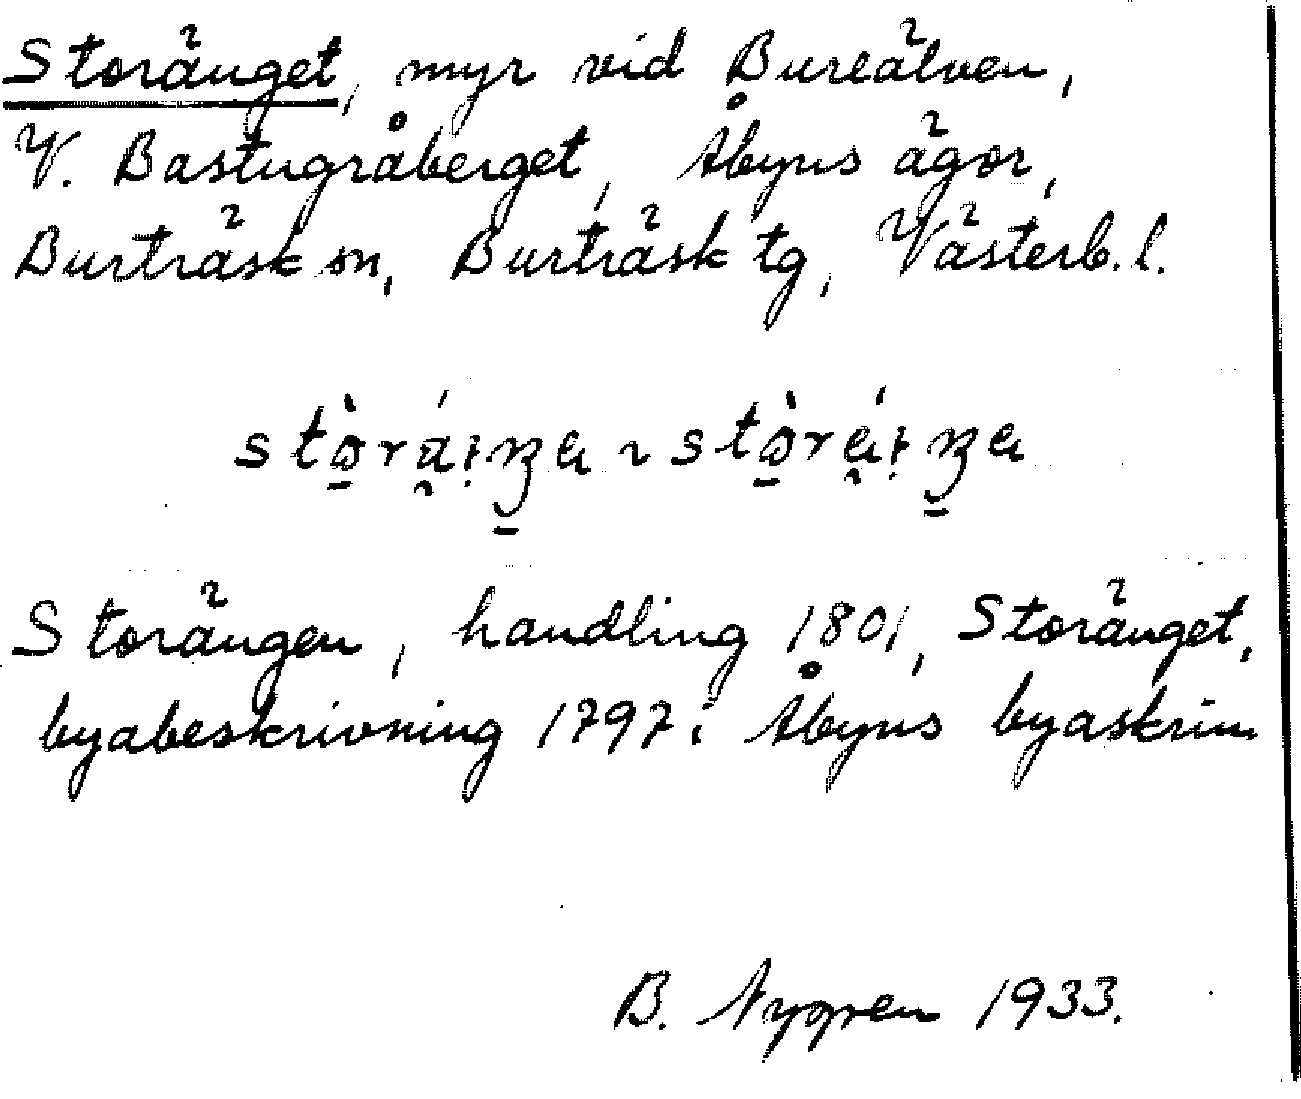 Storänget, myr vid Bureälven,
V. Bastugråberget, Åbyns ägor,
Burträsk sn, Burträsk tg, Västerb. l.
Storängen, handling 1801, Storänget,
byabeskrivning 1797 i Åbyns byaskrin
B. Nygren 1933.